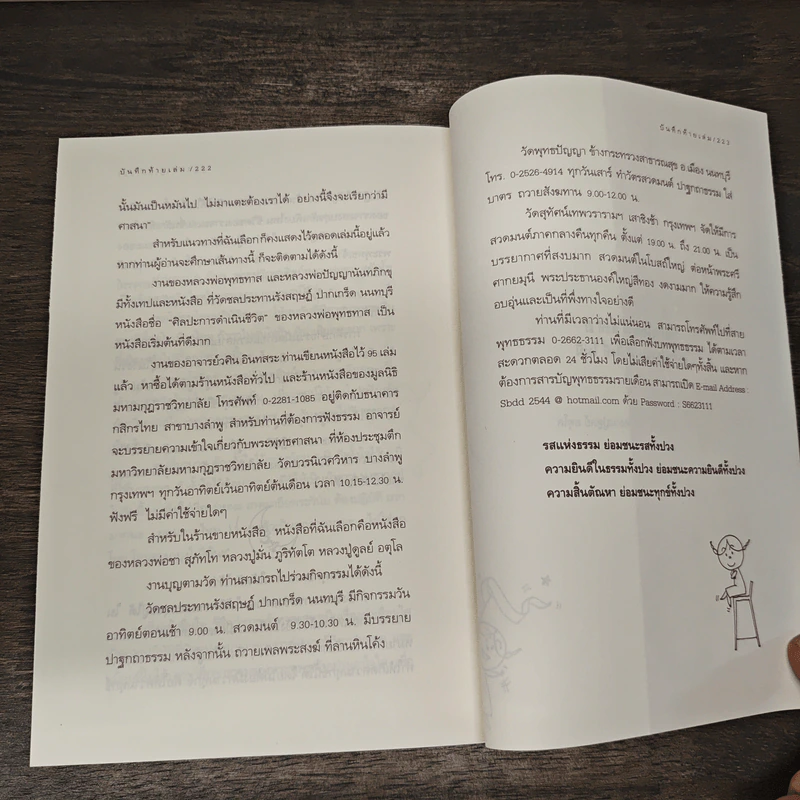 บันทึกท้ายเล่ม /222
นั้นมันเป็นหมันไป ไม่มาแตะต้องเราได้ อย่างนี้จึงจะเรียกว่ามี
ศาสนา"
สำหรับแนวทางที่ฉันเลือก ก็คงแสดงไว้ตลอดเล่มนี้อยู่แล้ว
หากท่านผู้อ่านจะศึกษาเส้นทางนี้ ก็จะติดตามได้ดังนี้
งานของหลวงพ่อพุทธทาส และหลวงพ่อปัญญานันทภิกขุ
มีทั้งเทปและหนังสือ ที่วัดชลประทานรังสฤษฎ์ ปากเกร็ด นนทบุรี
หนังสือชื่อ "ศิลปะการดำเนินชีวิต" ของหลวงพ่อพุทธทาส เป็น
หนังสือเริ่มต้นที่ดีมาก
งานของอาจารย์วศิน อินทสระ ท่านเขียนหนังสือไว้ 95 เล่ม
แล้ว หาซื้อได้ตามร้านหนังสือทั่วไป และร้านหนังสือของมูลนิธิ
มหามกุฎราชวิทยาลัย โทรศัพท์ 0-2281-1085 อยู่ติดกับธนาคาร
กสิกรไทย สาขาบางลำพู สำหรับท่านที่ต้องการฟังธรรม อาจารย์
จะบรรยายความเข้าใจเกี่ยวกับพระพุทธศาสนา ที่ห้องประชุมตึก
มหาวิทยาลัยมหามกุฎราชวิทยาลัย วัดบวรนิเวศวิหาร บางลำพู
กรุงเทพฯ ทุกวันอาทิตย์เว้นอาทิตย์ต้นเดือน เวลา 10.15-12.30 น.
ฟังฟรี ไม่มีค่าใช้จ่ายใดๆ
สำหรับในร้านขายหนังสือ หนังสือที่ฉันเลือกคือหนังสือ
ของหลวงพ่อชา สุภัทโท หลวงปู่มั่น ภูริทัตโต หลวงปู่ดูลย์ อตุโล
งานบุญตามวัด ท่านสามารถไปร่วมกิจกรรมได้ดังนี้
วัดชลประทานรังสฤษฎ์ ปากเกร็ด นนทบุรี มีกิจกรรมวัน
อาทิตย์ตอนเช้า 9.00 น. สวดมนต์ 9.30-10.30 น. มีบรรยาย
ปาฐกถาธรรม หลังจากนั้น ถวายเพลพระสงฆ์ ที่ลานหินโค้ง
บันทึกท้ายเล่ม/223
วัดพุทธปัญญา ข้างกระทรวงสาธารณสุข อ.เมือง นนทบุรี
โทร. 0-2526-4914 ทุกวันเสาร์ ทำวัตรสวดมนต์ ปาฐกถาธรรม ใส่
บาตร ถวายสังฆทาน 9.00-12.00 น.
วัดสุทัศน์เทพวรารามฯ เสาชิงช้า กรุงเทพฯ จัดให้มีการ
สวดมนต์ภาคกลางคืนทุกคืน ตั้งแต่ 19.00 น. ถึง 21.00 น. เป็น
บรรยากาศที่สงบมาก สวดมนต์ในโบสถ์ใหญ่ ต่อหน้าพระศรี
ศากยมุนี พระประธานองค์ใหญ่สีทอง งดงามมาก ให้ความรู้สึก
อบอุ่นและเป็นที่พึ่งทางใจอย่างดี
ท่านที่มีเวลาว่างไม่แน่นอน สามารถโทรศัพท์ไปที่สาย
พุทธธรรม 0-2662-3111 เพื่อเลือกฟังบทพุทธธรรม ได้ตามเวลา
สะดวกตลอด 24 ชั่วโมง โดยไม่เสียค่าใช้จ่ายใดๆทั้งสิ้น และหาก
ต้องการสารบัญพุทธธรรมรายเดือน สามารถเปิด E-mail Address :
Sbdd 2544 @ hotmail.com ด้วย Password : S6623111
รสแห่งธรรม ย่อมชนะรสทั้งปวง
ความยินดีในธรรมทั้งปวง ย่อมชนะความยินดีทั้งปวง
ความสิ้นตัณหา ย่อมชนะทุกข์ทั้งปวง